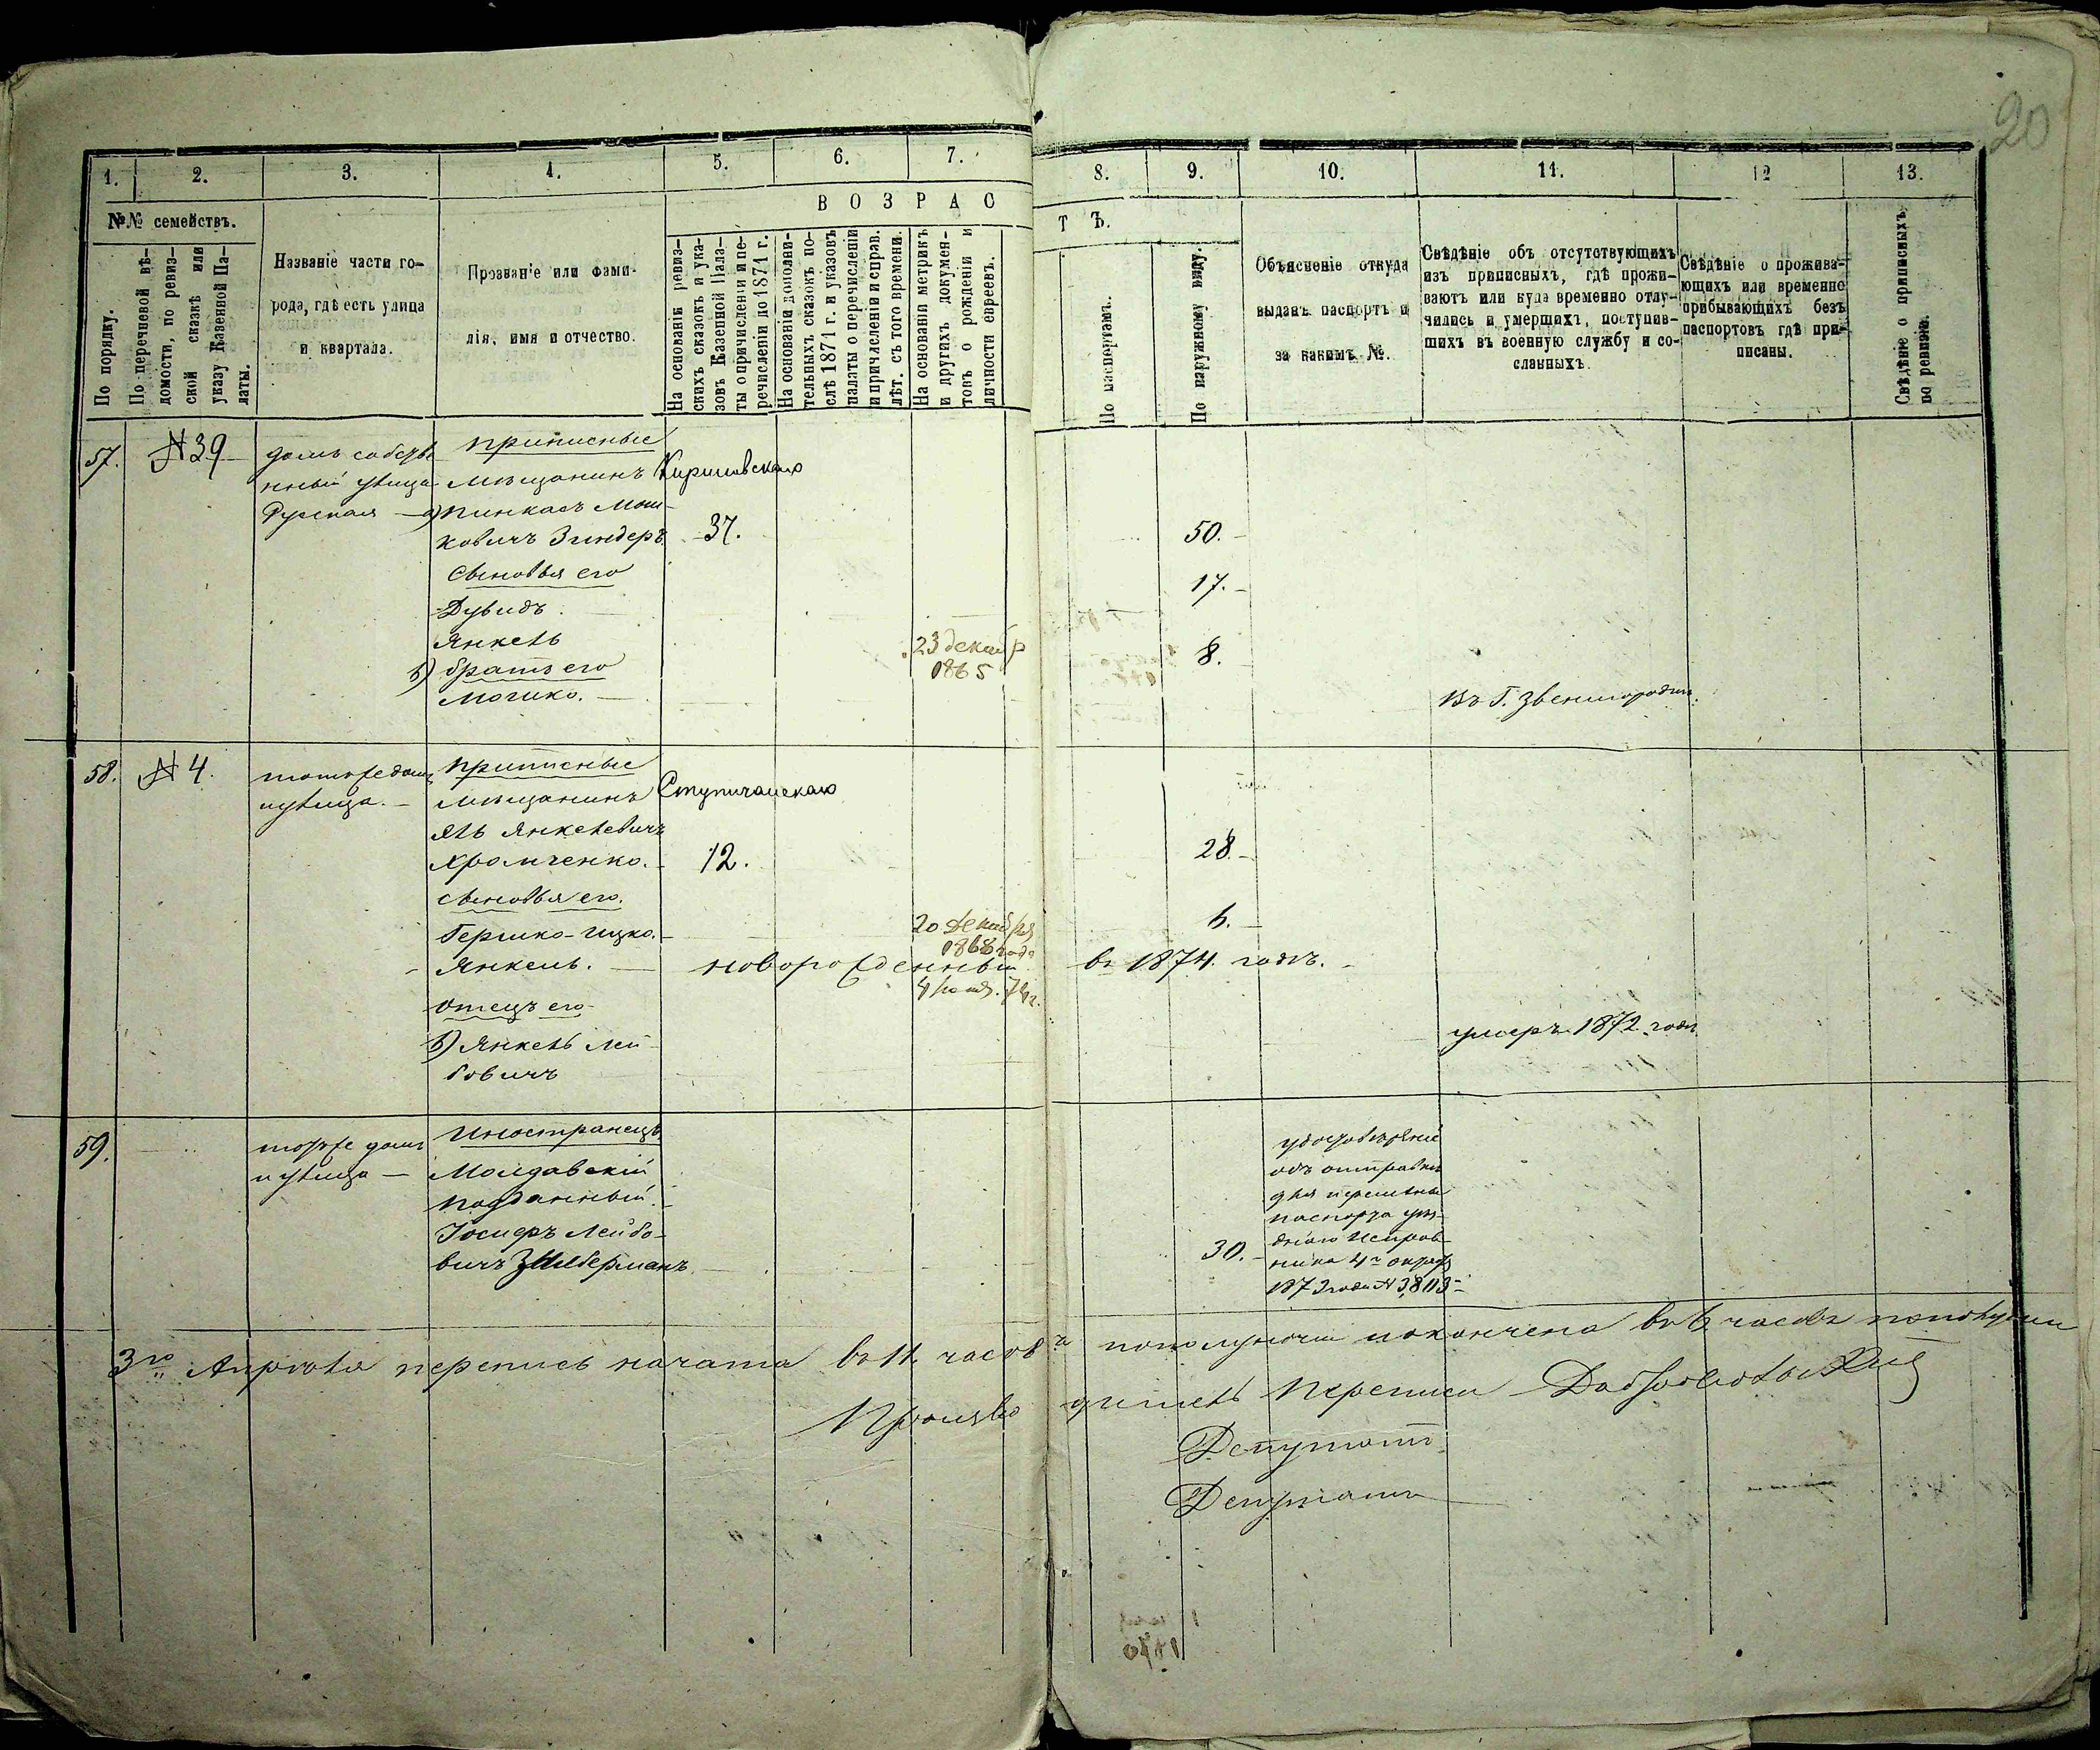 20
1. 2. 3. 4. 5. 6. 7. 8. 9. 10. 11. 12 13.
В О З Р А С Т Ъ.
№№ семействъ.
По порядку.
По перечневой вѣ-
домости, по ревиз-
ской сказкѣ или
указу Казенной Па-
латы.
Названіе части го-
рода, гдѣ есть улица
и квартала.
Прозван'е или фами-
лія, имя и отчество.
На основаніи ревиз-
скихъ сказокъ и ука-
зовъ Казенной Пала-
ты о причисленіи и пе-
речисленіи до 1871 г.
На основаніи дополни-
тельныхъ сказокъ по-
слѣ 1871 г. и указовъ
палаты о перечисленіи
и причисленіи и справ.
лѣт. съ того времени.
На основаніи метрикъ
и другихъ докумен-
товъ о рожденіи и
личности евреевъ.
По паспортамъ.
По наружному виду.
Объясненіе откуда
выданъ паспортъ и
за какимъ №.
Свѣдѣніе объ отсутствующихъ
изъ приписныхъ, гдѣ прожи-
ваютъ или куда временно отлу-
чились и умершихъ, поступив-
шихъ въ военную службу и со-
сланныхъ.
Свѣдѣніе о прожива-
ющихъ или временно
прибывающихъ безъ
паспортовъ гдѣ при-
писаны.
Свѣдѣніе о приписныхъ
по ревизіи.
57. №39 домъ собств
нный улица
Русская
приписные
мѣщанинъ
а) Пинкасъ Мош-
ковичъ Зиндеръ 37. 50.
сыновья его
Дувидъ. 17.
Янкель 23 декабр 1865 8.
в) братъ его
Мошко. Въ г. Звенигородки
58. № 4. тотже домъ
и улица.
приписные
мѣщанинъ
Янкелевичъ
Хромченко. 12. 28.
сыновья его.
Гершко-Ицко. 20 декабря
1868 года 6.
Янкель. новорожденный въ 1874 годъ.
отецъ его
в) Янкель Лей-
бовичъ умеръ 1872 года
59. тотже домъ
и улица
Иностранецъ
Молдавскій
подданный
Іосифъ Лейбо-
вичъ Зильберманъ 30.
удостовѣреніе
объ отправкѣ
для перемѣны
паспорта уѣз-
днаго Исправ-
ника
3го Апрѣля перепись начата въ 11 часовъ пополуночи и окончена въ 6 часовъ пополудни
Производитель переписи
Депутатъ
Депутатъ